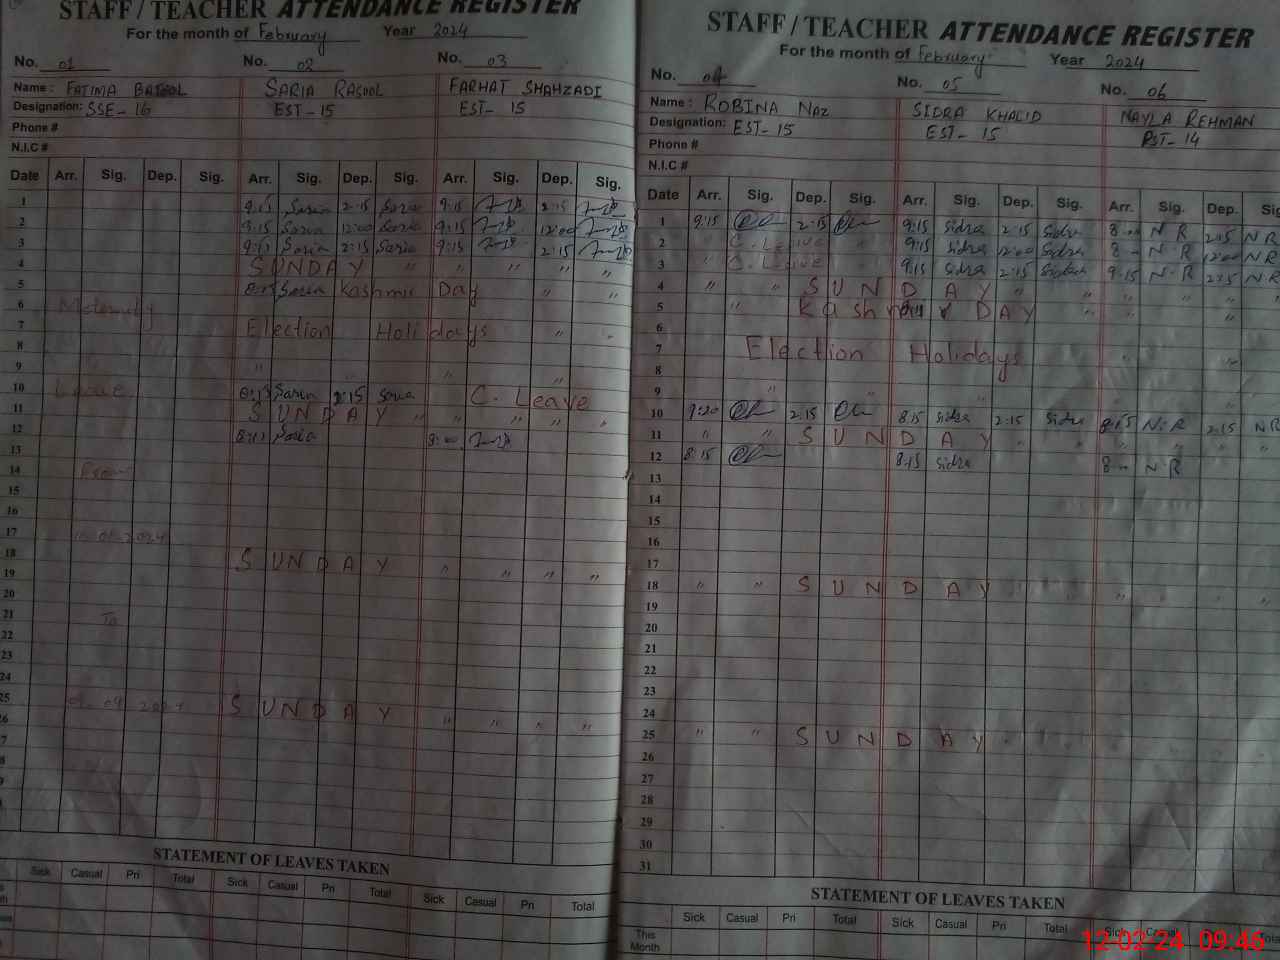 STAFF / TEACHER ATTENDANCE REGISTER
For the month of February Year 2024
No. 01 No. 02 No. 03
Name : FATIMA BATOOL SARIA RASOOL FARHAT SHAHZADI
Designation: SSE- 16 EST- 15 EST- 15
Phone #
N.I.C #
Date Arr. Sig. Dep. Sig. Arr. Sig. Dep. Sig. Arr. Sig. Dep. Sig.
1 9:15 Saria 2:15 Saria 9:15 2:15
2 9:15 Saria 12:00 Saria 9:15 12:00
3 9:15 Saria 2:15 Saria 9:15 2:15
4 SUNDAY " " " " "
5 8:15 Saria Kashmir Day " "
6 Maternity
7 Election Holidays "
8
9 " " "
10 Leave 8:15 Saria 2:15 Saria C. Leave
11 SUNDAY " " " "
12 8:15 Saria 8:00
13
14 From
15
17 2024
18 SUNDAY " " " "
19
20
21 To
22
23
24
25 2024 SUNDAY " " " "
26
STATEMENT OF LEAVES TAKEN
Sick Casual Pri Total Sick Casual Pri Total Sick Casual Pri Total
STAFF / TEACHER ATTENDANCE REGISTER
For the month of February Year 2024
No. 04 No. 05 No. 06
Name : ROBINA NAZ SIDRA KHALID NAYLA REHMAN
Designation: EST- 15 EST- 15 PST- 14
Phone #
N.I.C #
Date Arr. Sig. Dep. Sig. Arr. Sig. Dep. Sig. Arr. Sig. Dep. Sig.
1 9:15 2:15 9:15 Sidra 2:15 Sidra 8:00 N R 2:15 N R
2 " C. Leave 9:15 Sidra 12:00 Sidra 8:00 N R 12:00 N R
3 " C. Leave 9:15 Sidra 2:15 Sidra 9:15 N.R 2:15 N R
4 " " SUNDAY " " " "
5 " Kashmir DAY " " "
6
7 Election Holidays " "
8
9 " "
10 9:20 2:15 8:15 Sidra 2:15 Sidra 8:15 N.R 2:15 N R
11 " " SUNDAY " " " " "
12 8:15 8:15 Sidra 8:00 N.R
13
14
15
16
17
18 " " SUNDAY " " " "
19
20
21
22
23
24
25 " " SUNDAY
26
27
28
29
30
31
STATEMENT OF LEAVES TAKEN
Sick Casual Pri Total Sick Casual Pri Total Sick Casual Total
This Month
12-02-24 09:46